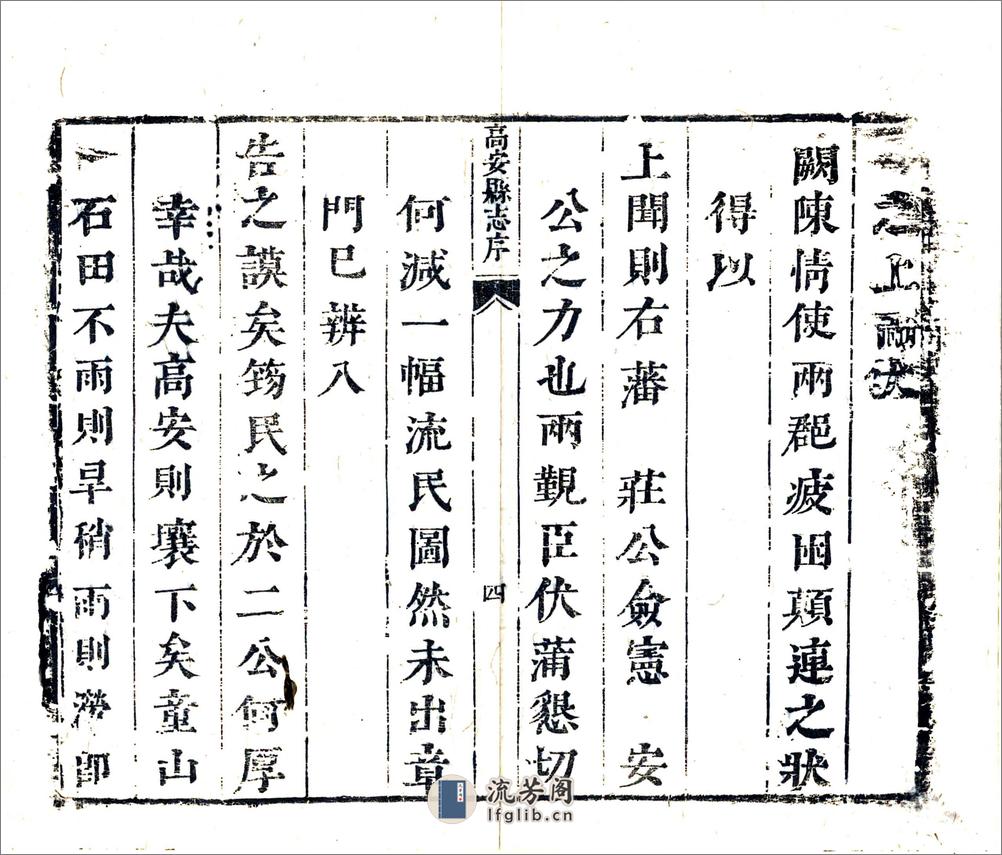 之上
闕陳情使兩郡疲困顛連之狀
得以
上聞則右藩 莊公僉憲 安
公之力也兩覲臣伏蒲懇切
高安縣志序 四
何減一幅流民圖然未出章
門已辨入
告之謨矣筠民之於二公何厚
幸哉夫高安則壤下矣童山
石田不雨則旱稍雨則澇即
流芳阁
lfglib.cn